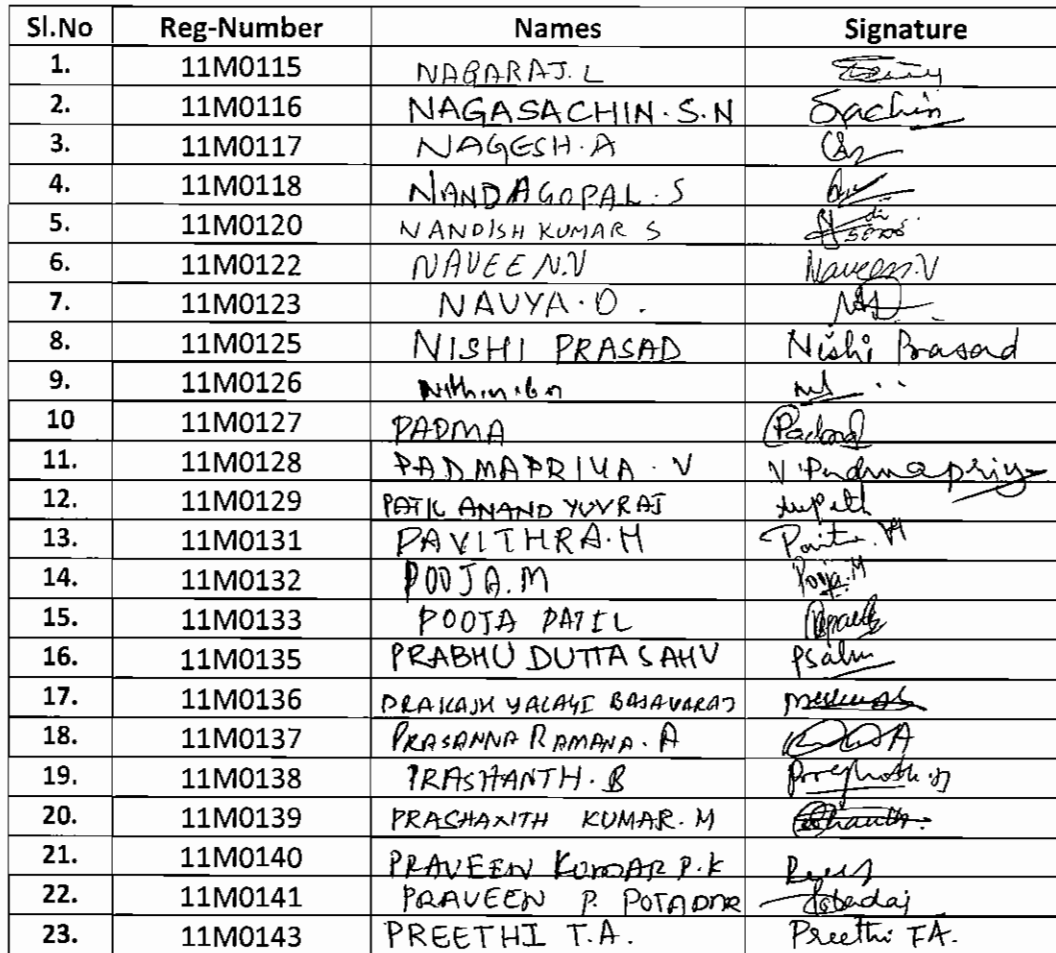 Sl.No Reg-Number Names Signature
1. 11M0115 NAGARAJ. L
2. 11M0116 NAGASACHIN. S. N Sachin
3. 11M0117 NAGESH. A
4. 11M0118 NANDAGOPAL. S
5. 11M0120 NANDISH KUMAR S
6. 11M0122 NAVEEN.V Naveen.V
7. 11M0123 NAVYA. D.
8. 11M0125 NISHI PRASAD Nishi Prasad
9. 11M0126
10 11M0127 PADMA Padma
11. 11M0128 PADMAPRIYA. V V Padmapriya
12. 11M0129 PATIL ANAND YUVRAJ
13. 11M0131 PAVITHRA.H
14. 11M0132 POOJA.M Pooja.M
15. 11M0133 POOJA PATIL
16. 11M0135 PRABHU DUTTA SAHU PSahu
17. 11M0136 PRAKASH YALAGI BASAVARAJ
18. 11M0137 PRASANNA RAMANA. A
19. 11M0138 PRASHANTH. B
20. 11M0139 PRASHANTH KUMAR. M
21. 11M0140 PRAVEEN KUMAR P.K
22. 11M0141 PRAVEEN P. POTADAR
23. 11M0143 PREETHI T.A. Preethi T.A.